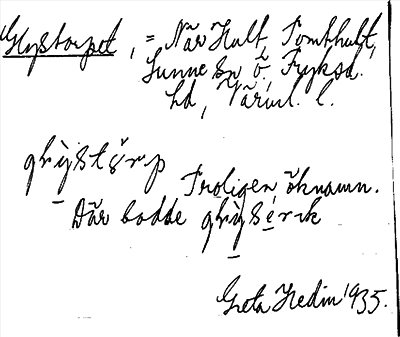 Glystorpet, = När Hult, Tomthult,
Sunne sn, Ö. Fryksd.
hd, Värml. l.
Troligen öknamn.
Där bodde
Greta Hedin 1935.